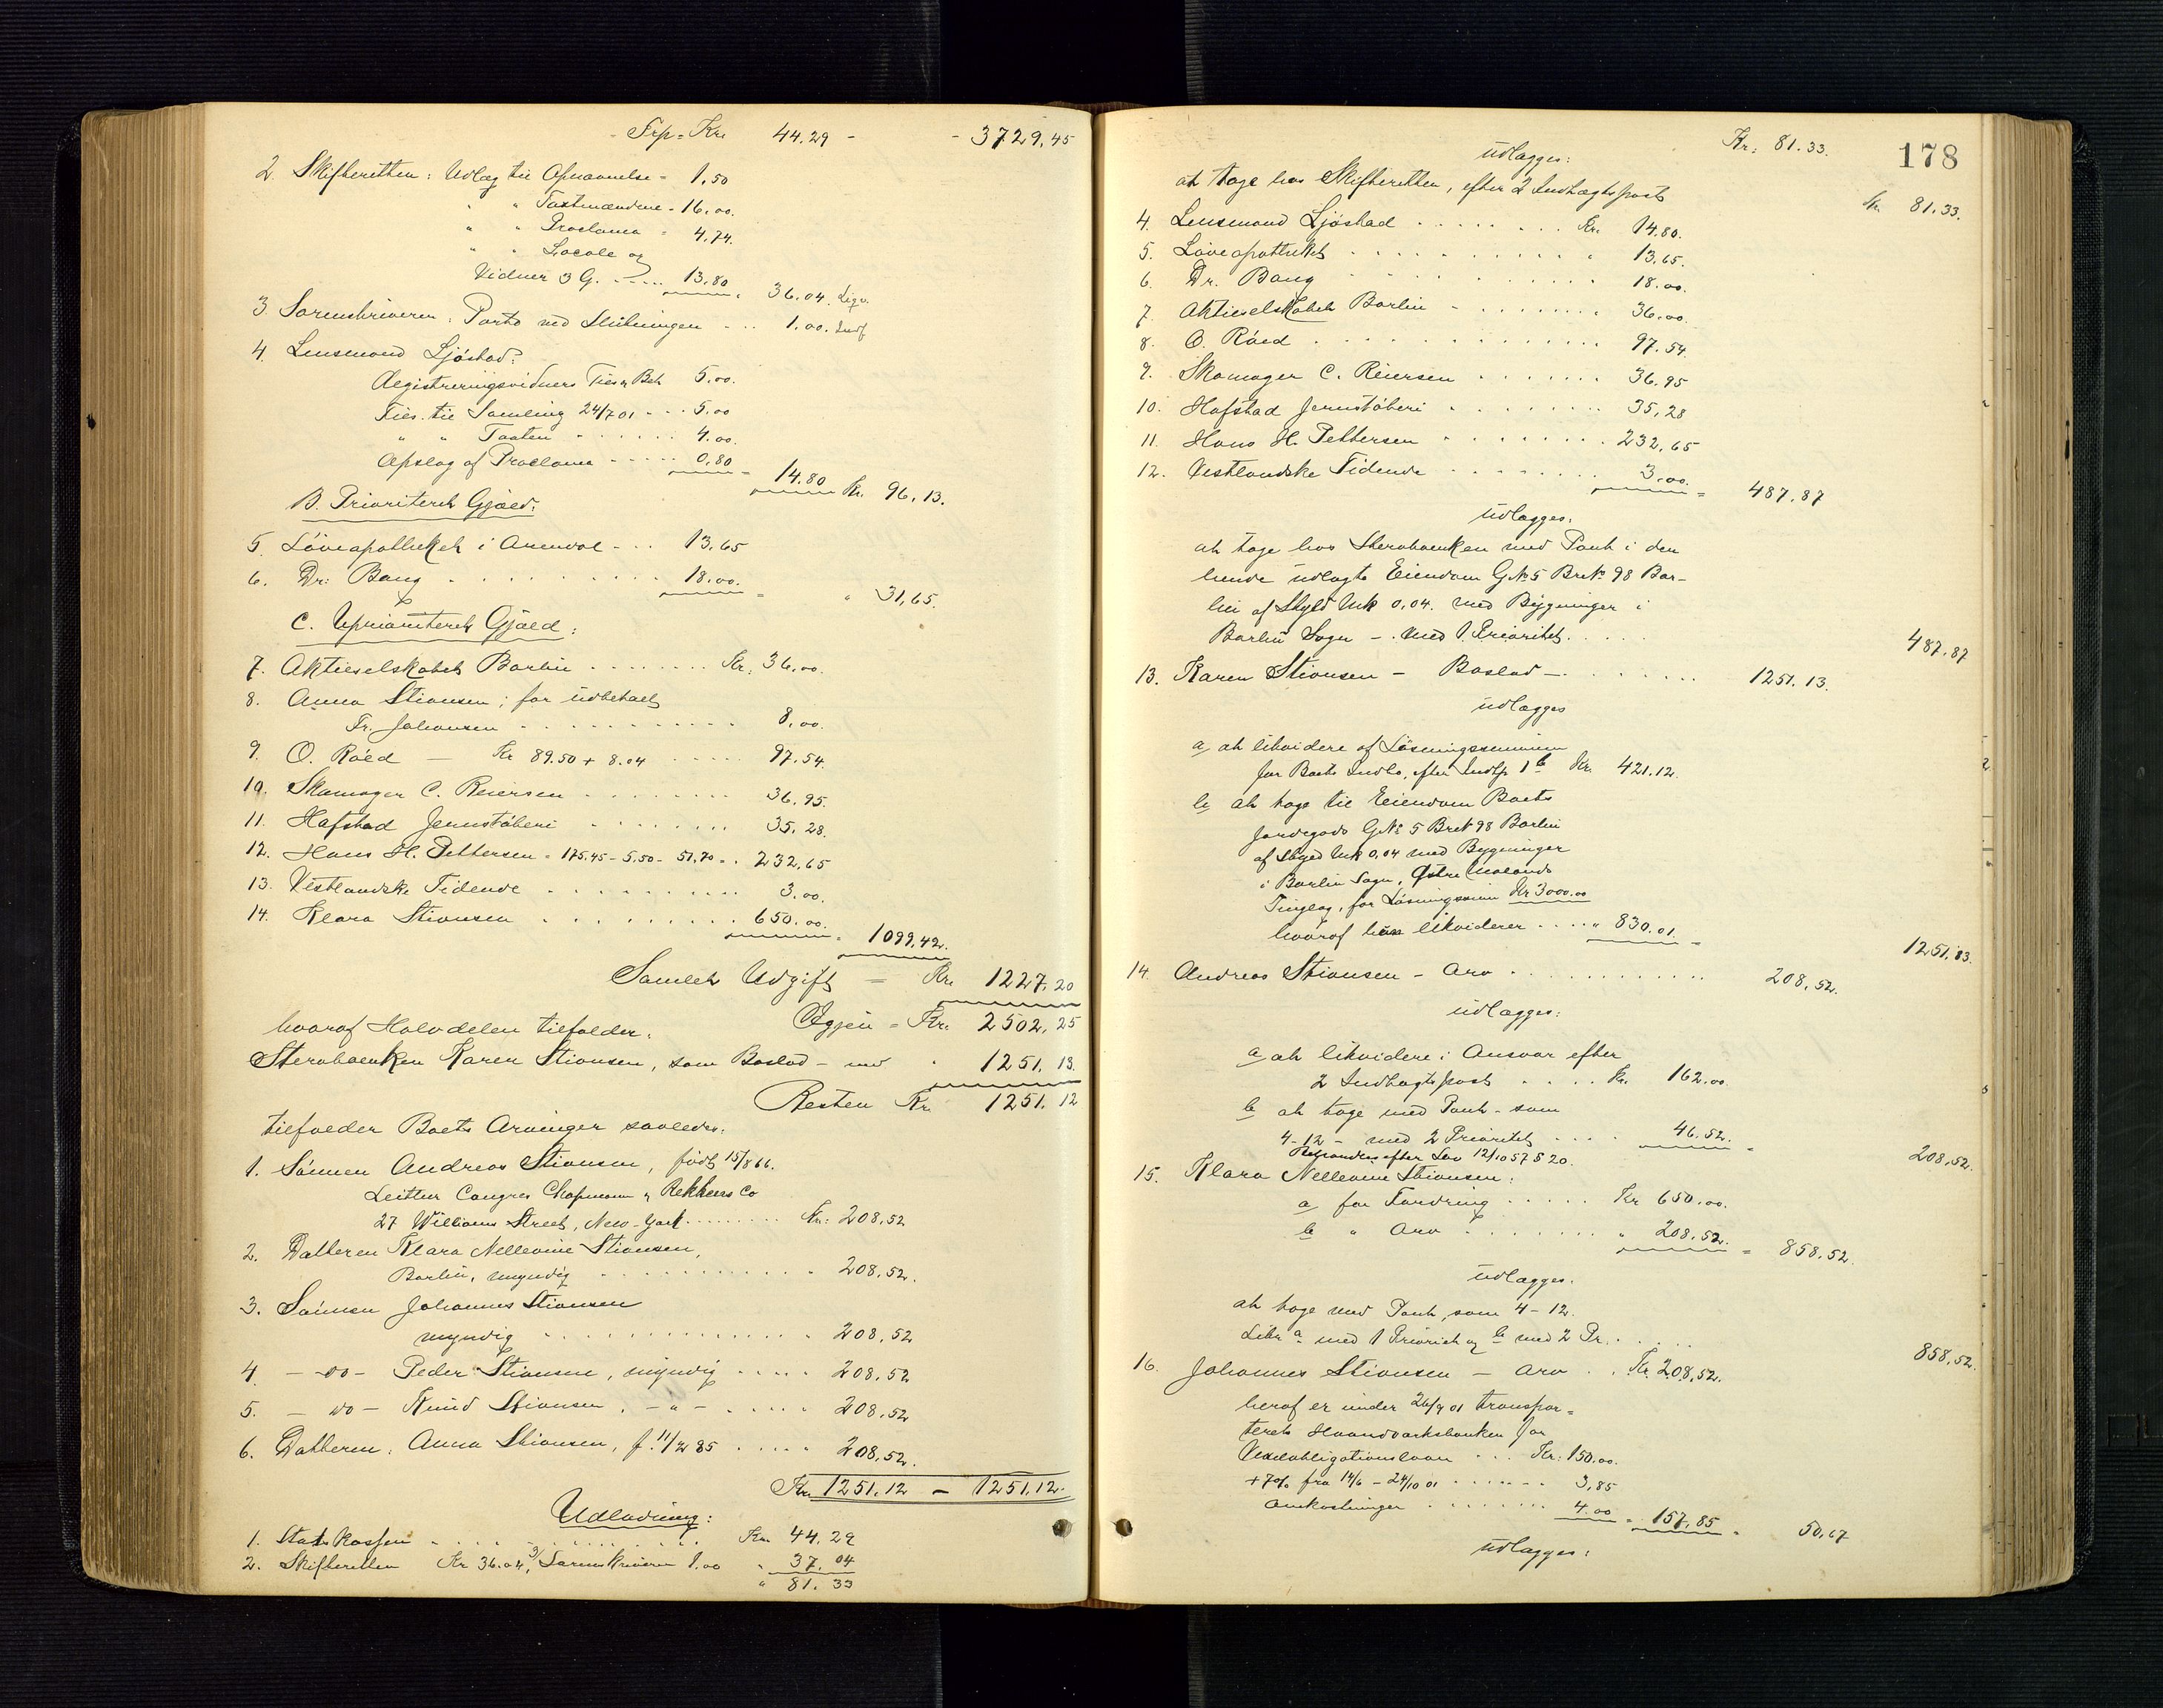 Trp. Kr. 44.29 - - 3729,45
2. Skifteretten: Udlæg til Opnævnelse - 1,50
" " Taxtmændene - 16.00.
" " Proclama = 4,74.
" " Locale og
Vidner 3 G. - - - - 13,80 " 36.04. Liqv.
3. Sorenskriveren: Porto ved Slutningen - - - 1.00. Indf
4. Lensmand Ljøstad:
Registreringsvidners Ties & Bet. 5.00.
Ties. til Samling 24/7 01 - - - 5.00
" " Taxten - - - - - - 4.00.
Opslag af Proclama - - - - - 0,80 = 14.80 Kr. 96.13.
B. Prioriteret Gjæld.
5. Løveapotheket i Arendal - - - 13,65
6. Dr. Bang . . . . . . . . . 18.00. = " 31,65.
C. Uprioriteret Gjæld:
7. Aktieselskabet Barbu . . . . . . . . Kr. 36.00.
8. Anna Stiansen; for udbetalt
Fr. Johansen - - - - - - - - - - - 8.00.
9. O. Røed — Kr 89.50 + 8.04 - - - - - 97.54.
10. Skomager C. Reiersen - - - - - - - - 36.95.
11. Hafstad Jernstøberi - - - - - - - - 35.28.
12. Hans H. Pettersen = 175.45 - 5,50 - 51,70 = . 232,65
13. Vestlandske Tidende . . . . . . . . . . 3.00.
14. Klara Stiansen . . . . . . . . . 650.00. = 1099,42.
Samlet Udgift = Kr. 1227,20
Egjen = Kr. 2502,25
hvoraf Halvdelen tilfalder:
Stervboenken Karen Stiansen, som Boslod - med " 1251.13.
Resten Kr. 1251.12
tilfalder Boets Arvinger saaledes:
1. Sønnen Andreas Stiansen, født 15/8 66.
Leitner Congres Chapmann & Rekkens Co
27 Williams Street, New-York . . . . . . . . . Kr: 208,52
2. Datteren Klara Nellevine Stiansen,
Barbu, myndig - - - - - - - - - - - 208,52.
3. Sønnen Johannes Stiansen
myndig - - - - - - - - - - - - - 208,52
4. - do - Peder Stiansen, myndig - - - - - 208,52
5. - do - Knud Stiansen, - " - - - - - - 208,52
6. Datteren: Anna Stiansen, f. 11/2 85 - - - - - 208,52.
Kr. 1251.12 — 1251.12.
Udlodning:
1. Statskassen . . . . . . . . . . . . . Kr. 44.29
2. Skifteretten Kr 36.04, 3/ Sorenskriveren 1.00 " 37.04
" 81.33
178
Kr. 81.33.
udlægges:
at tage hos Skifteretten, efter 2 Indtægtspost Kr. 81.33.
4. Lensmand Ljøstad . . . . . . . . Kr. 14.80.
5. Løveapotheket . . . . . . . . . . " 13,65.
6. Dr. Bang . . . . . . . . 18.00.
7. Aktieselskabet Barbu - . . . . . . . 36.00.
8. O. Røed . . . . . . . . . . . . . 97.54.
9. Skomager C. Reiersen . . . . . . . 36.95
10. Hafstad Jernstøberi . . . . . . . . 35,28
11. Hans H. Pettersen . . . . . . . . 232,65
12. Vestlandske Tidende . . . . . . . . 3.00. = 487.87
udlægges:
at tage hos Sterboenken med Pant i den
hende udlagte Eiendom G.No 5 Br.No 98 Bar-
bu af Skyld Mk 0,04. med Bygninger i
Barbu Sogn - . med 1. Prioritet . . . . 487.87
13. Karen Stiansen - Boslod - . . . . . . . 1251.13.
udlægges
a, at likvidere af Løsningssummen
for Boets Indbo, efter Indtp 1 b Kr. 421.12.
b, at tage til Eiendom Boets
Jordegods G.No 5 Br.No 98 Barbu
af Skyld Mk 0,04 med Bygninger
i Barbu Sogn, Østre Molands
Tinglag, for Løsningssum Kr 3000.00
hvoraf hun likviderer . . . . " 830.01. = 1251,13.
14. Andreas Stiansen - Arv . . . . . . . . . . . 208,52.
udlægges:
a, at likvidere i Ansvar efter
2 Indtægtspost . . . . Kr. 162.00.
b at tage med Pant - som
4-12 - med 2 Prioritet . . . . 46,52. = 208,52.
efter Lov 12/10 57 § 20.
15. Klara Nellevine Stiansen:
a, for Fordring . . . . . Kr 650.00.
b " Arv . . . . . . . . " 208,52. = 858,52.
udlægges:
at tage med Pant, som 4-12.
Litr. a. med 1 Priorich og b med 2 Pr. . . . . 858,52.
16. Johannes Stiansen - Arv . . Kr. 208,52.
heraf er under 26/9 01 transpor=
teret Haandværksbanken for
Vexelobligationslaan . . . Kr. 150.00.
+ 7% fra 14/6 - 24/10 01 . . . . . . 3,85
Omkostninger . . . . . . . . 4.00 = 157.85 = 50,67
udlægges: